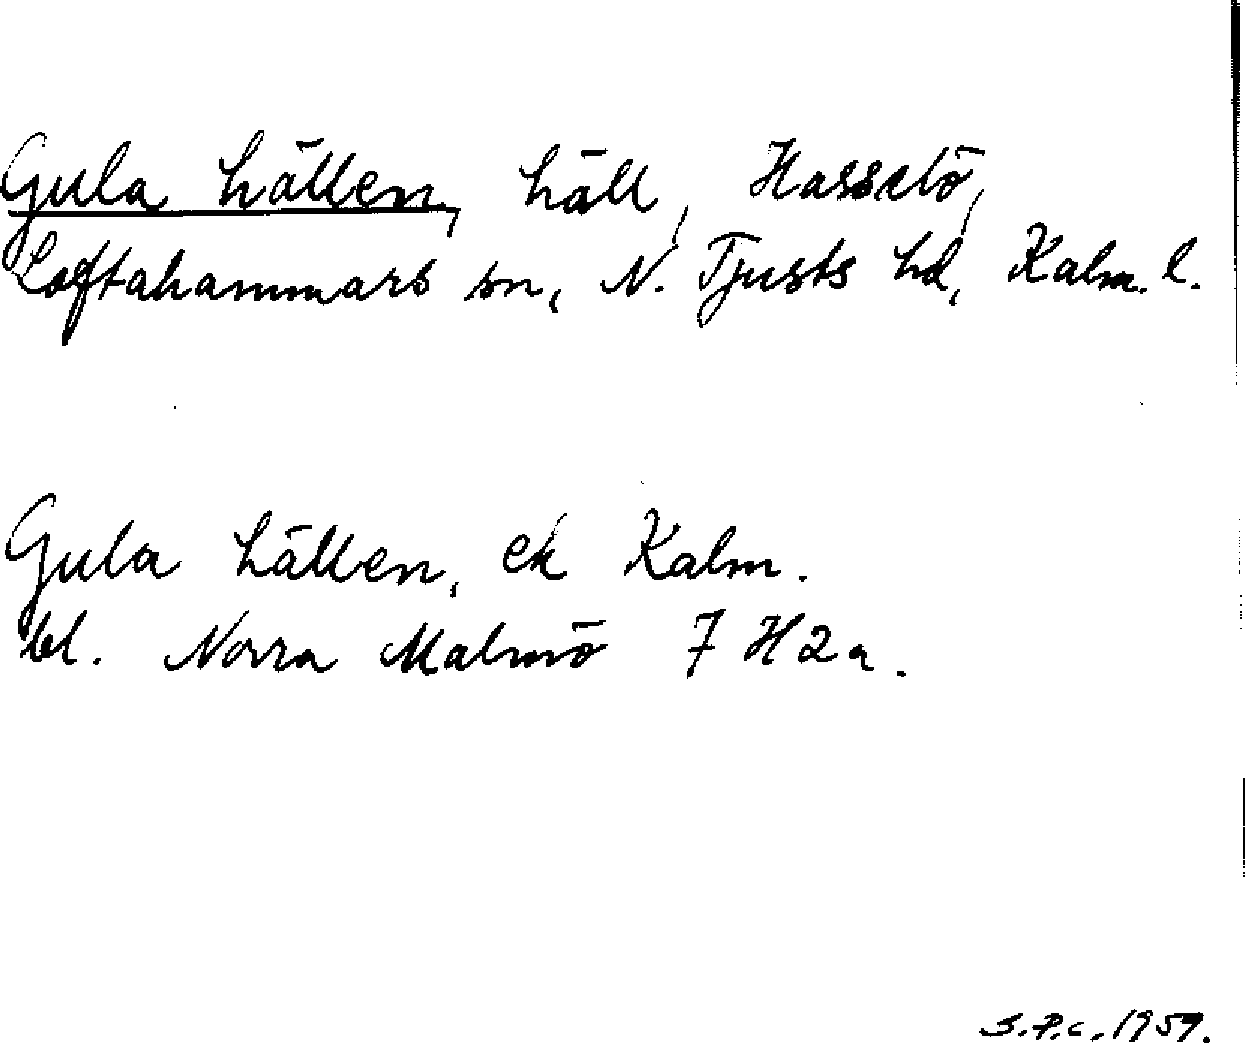 Gula hällen, häll, Hasselö,
Loftahammars sn, N. Tjusts hd, Kalm. l.
Gula hällen, ek Kalm.
bl. Norra Malmö 7 H 2 a.
S.P.C. 1959.